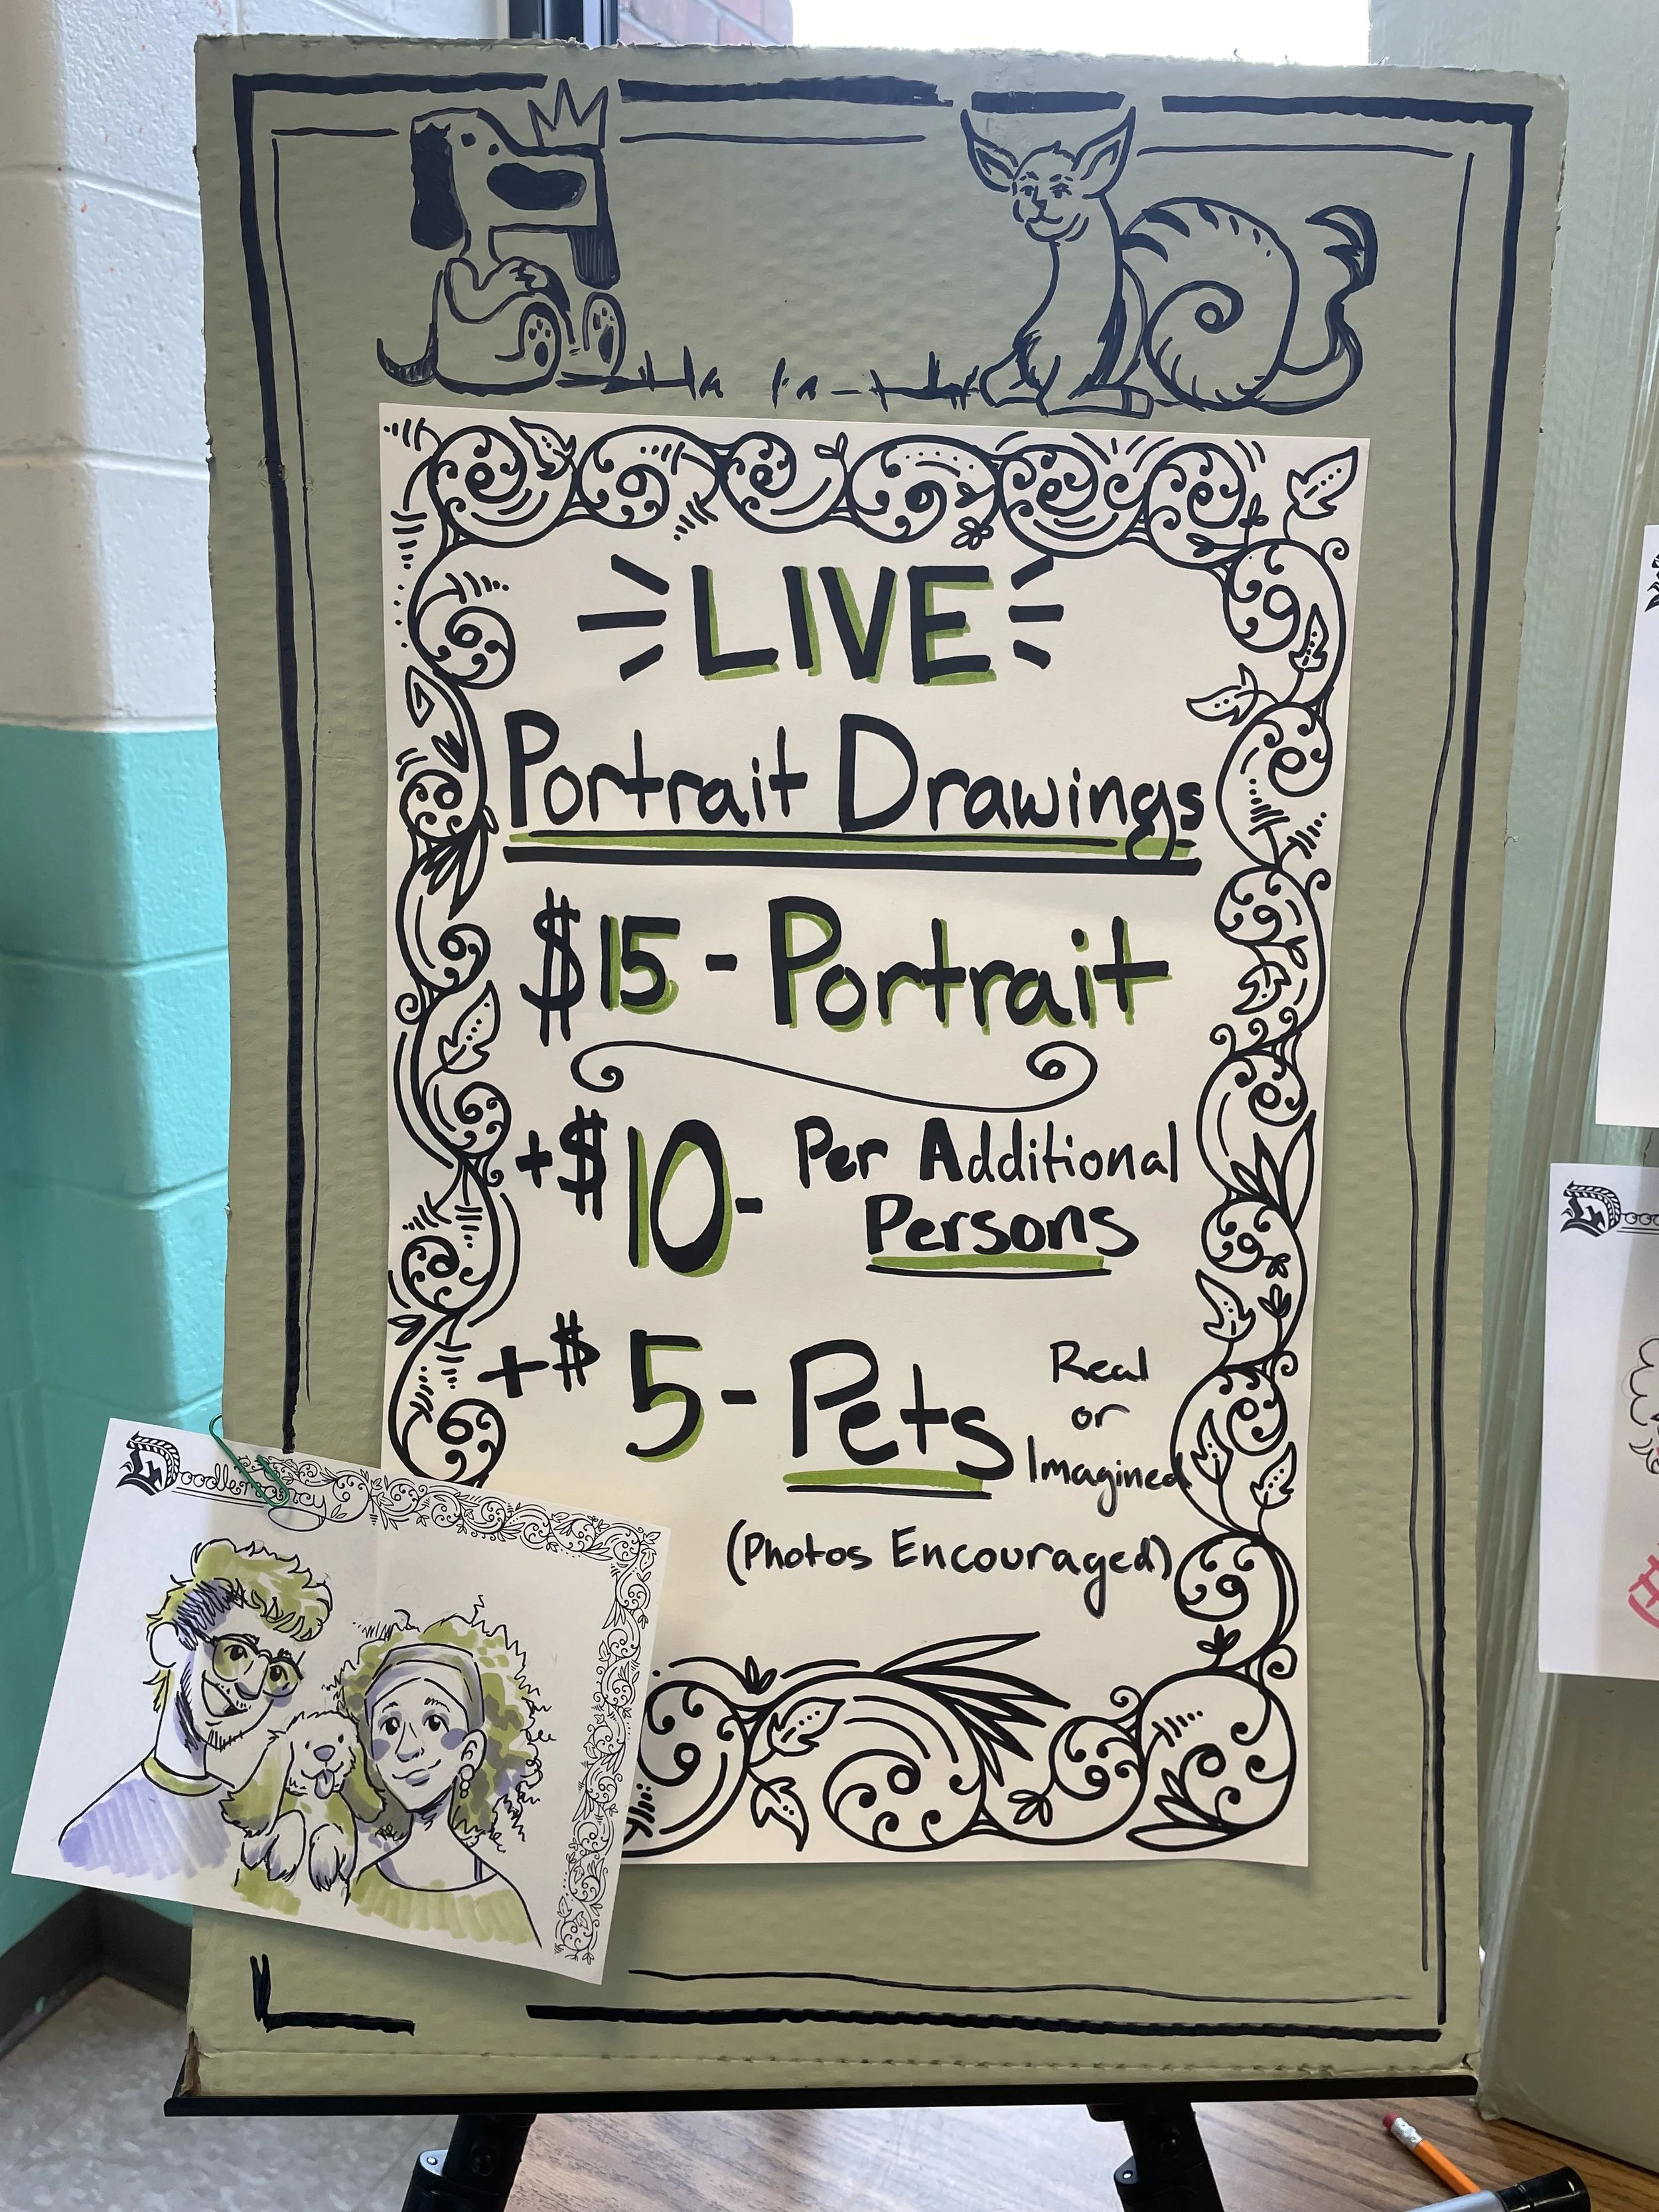 LIVE
Portrait Drawings
$15 - Portrait
+$10 - Per Additional
Persons
+$5 - Pets Real
or
Imagined
(Photos Encouraged)